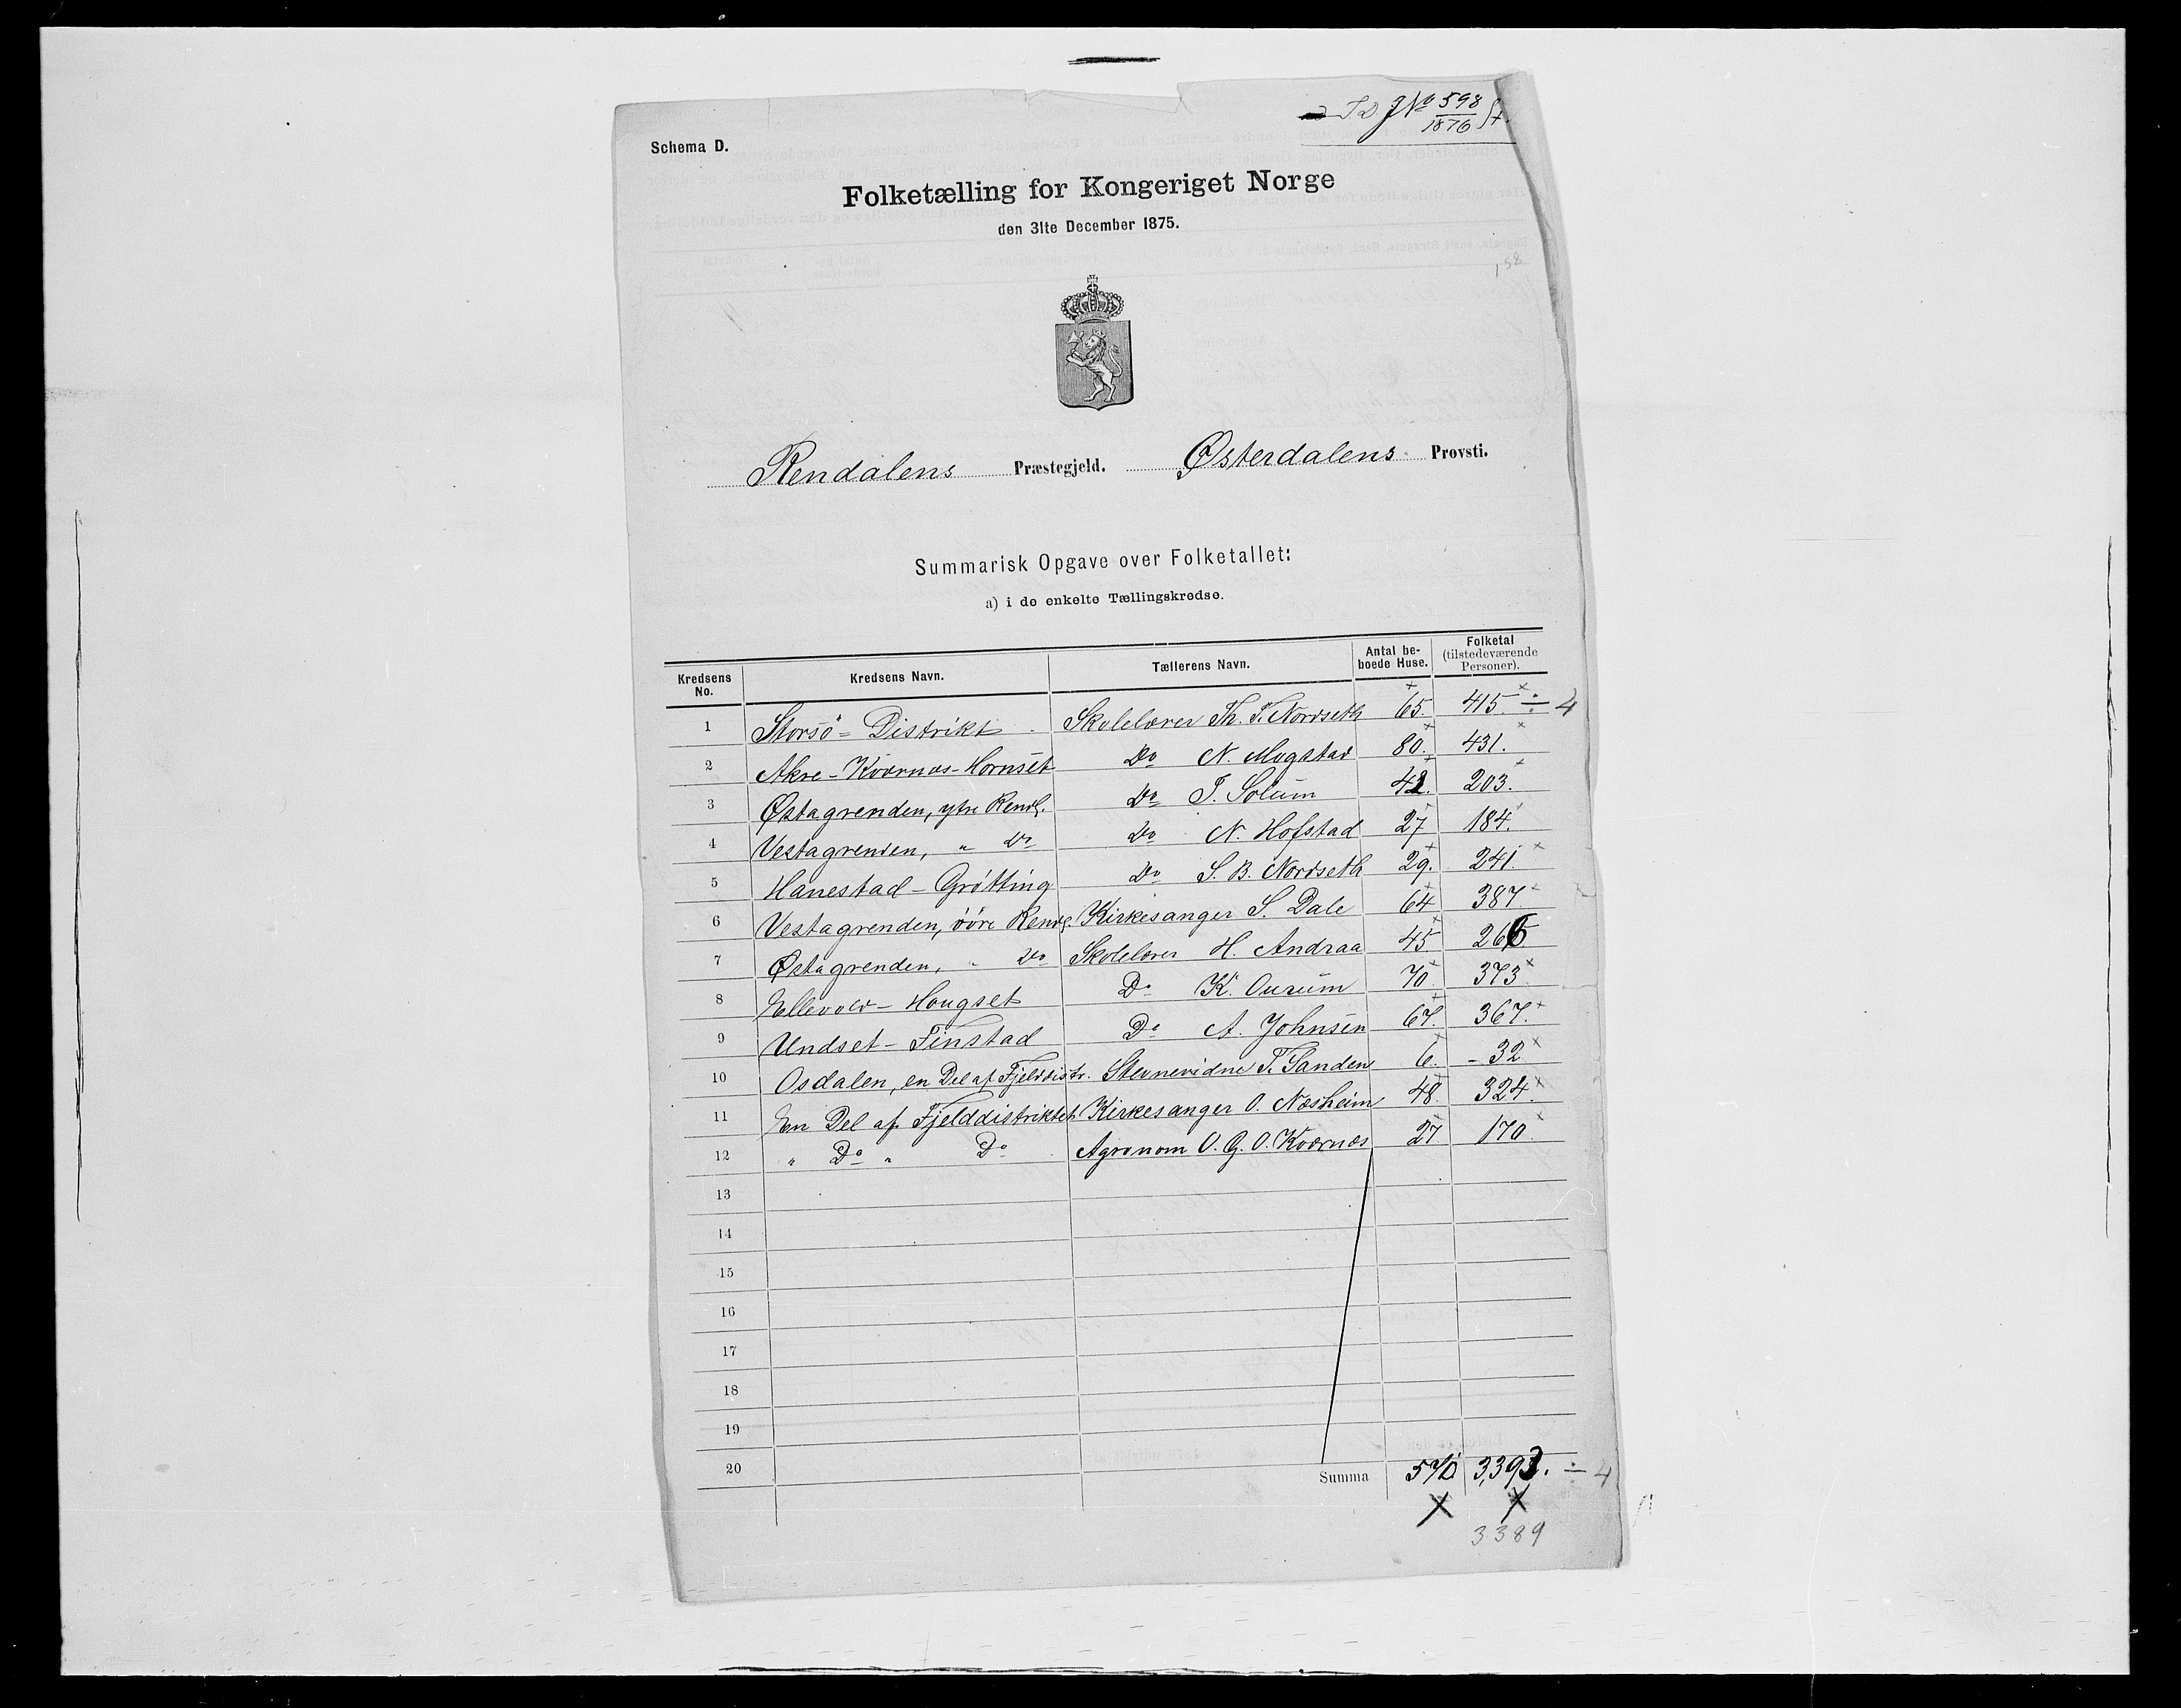 J No 598
1876
Schema D.
Folketælling for Kongeriget Norge
den 31te December 1875.
158
Rendalens Præstegjeld. Østerdalens Provsti.
Summarisk Opgave over Folketallet:
a) i de enkelte Tællingskredse.
Kredsens No. Kredsens Navn. Tællerens Navn. Antal beboede Huse. Folketal (tilstedeværende Personer).
1 Storsö- Distrikt Skolelærer Th. T. Nordseth 65. 415. ÷ 4
2 Akre-Kværnæs-Hornset Do N. Mogstad 80. 431.
3 Østagrenden, ytre Rendl. Do T. Solum 42. 203.
4 Vestagrenden, " Do Do N. Hofstad 27 184.
5 Hanestad-Grøtting Do S. B. Nordseth 29. 241.
6 Vestagrenden, øvre Rendl. Kirkesanger S. Dale 64 387
7 Østagrenden, " Do Skolelærer H. Andraa 45 266
8 Ellevold-Hougset Do K. Ourum 70. 373
9 Undset-Finstad Do A. Johnsen 67. 367.
10 Osdalen, en Del af Fjelddistr. Stevnevidne T. Sanden 6. - 32
11 En Del af Fjelddistriktet Kirkesanger O. Næsheim 48. 324.
12 " Do " Do Agronom O. G. O. Kværnæs 27 170.
13
14
15
16
17
18
19
20
Summa 570 3,393. ÷ 4
3389